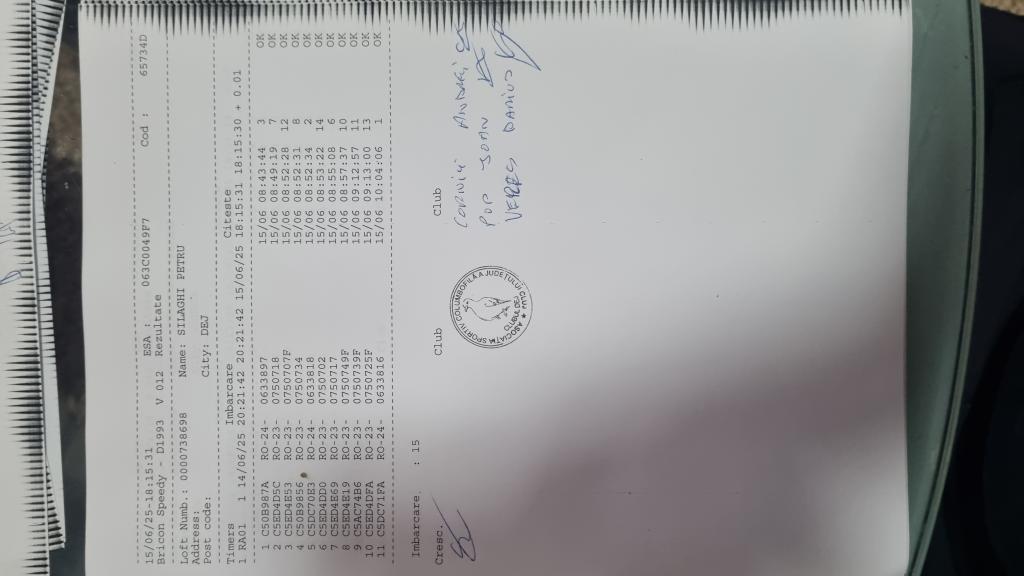 15/06/25-18:15:31 ESA : 063C0049F7 Cod : 65734D
Bricon Speedy - D1993 V 012 Rezultate
Loft Numb.: 0000738698 Name: SILAGHI PETRU
Address:
Post code: City: DEJ
Timers Imbarcare Citeste
1 RA01 1 14/06/25 20:21:42 20:21:42 15/06/25 18:15:31 18:15:30 + 0.01
1 C50B987A RO-24- 0633897 15/06 08:43:44 3 OK
2 C5ED4D5C RO-23- 0750718 15/06 08:49:19 7 OK
3 C5ED4E53 RO-23- 0750707F 15/06 08:52:28 12 OK
4 C50B9856 RO-23- 0750734 15/06 08:52:31 8 OK
5 C5DC70E3 RO-24- 0633818 15/06 08:52:34 2 OK
6 C5ED4DD0 RO-23- 0750702 15/06 08:53:22 14 OK
7 C5ED4E69 RO-23- 0750717 15/06 08:55:08 6 OK
8 C5ED4E19 RO-23- 0750749F 15/06 08:57:37 10 OK
9 C5AC74B6 RO-23- 0750739F 15/06 09:12:57 11 OK
10 C5ED4DFA RO-23- 0750725F 15/06 09:13:00 13 OK
11 C5DC71FA RO-24- 0633816 15/06 10:04:06 1 OK
Imbarcare : 15
Cresc. Club Club
ASOCIAȚIA SPORTIV COLUMBOFILĂ A JUDEȚULUI CLUJ ★
CLUBUL DEJ
ANDREI
POP IOAN
VEREȘ DARIUS